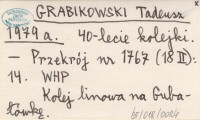 GRABIKOWSKI Tadeusz
1979 a. 40-lecie kolejki.
— Przekrój nr 1767 (18 II):
14. WHP
Kolej linowa na Guba-
łówkę.
bj/018/0084